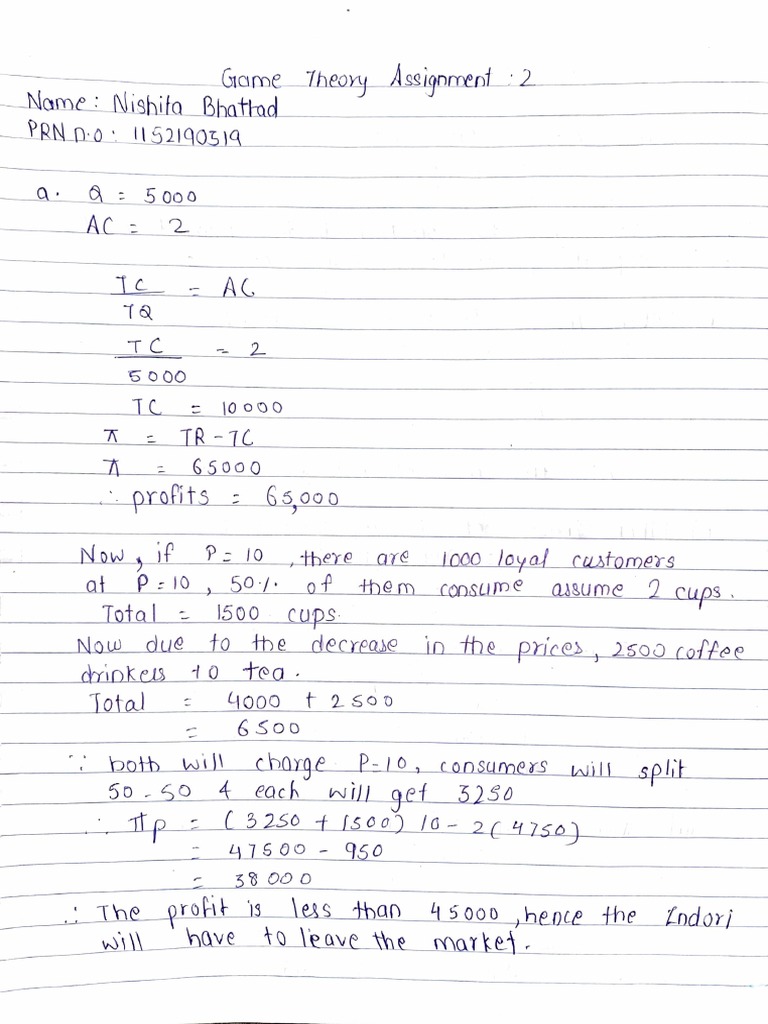 Game Theory Assignment : 2
Name : Nishita Bhattad
PRN n.o : 1152190319
a. Q = 5000
AC = 2
TC / TQ = AC
TC / 5000 = 2
TC = 10000
π = TR - TC
π = 65000
∴ profits = 65,000
Now, if P = 10, there are 1000 loyal customers
at P = 10, 50% of them consume assume 2 cups.
Total = 1500 cups.
Now due to the decrease in the prices, 2500 coffee
drinkers to tea.
Total = 4000 + 2500
= 6500
∵ both will charge P = 10, consumers will split
50-50 & each will get 3250
∴ πp = (3250 + 1500) 10 - 2(4750)
= 47500 - 950
= 38000
∴ The profit is less than 45000, hence the Indori
will have to leave the market.